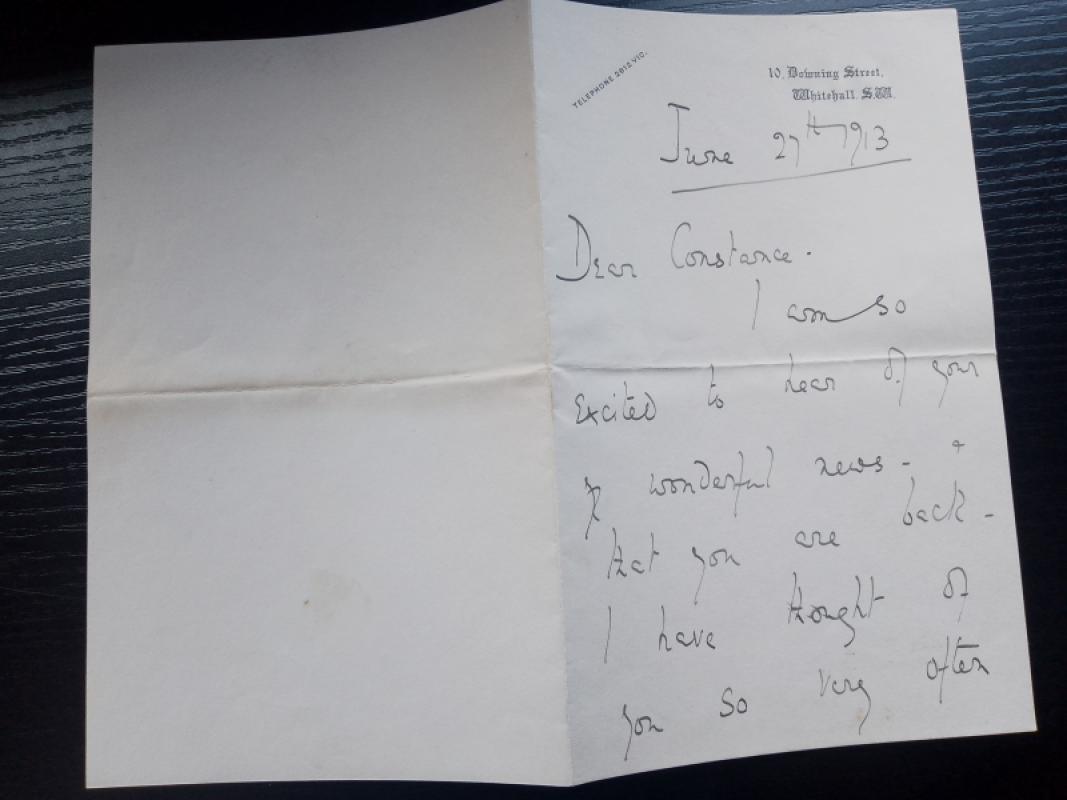 TELEPHONE 2812 VIC.
10, Downing Street,
Whitehall. S.W.
June 27th 1913
Dear Constance.
I am so
Excited to hear of your
wonderful news - &
that you are back -
I have thought of
you so very often